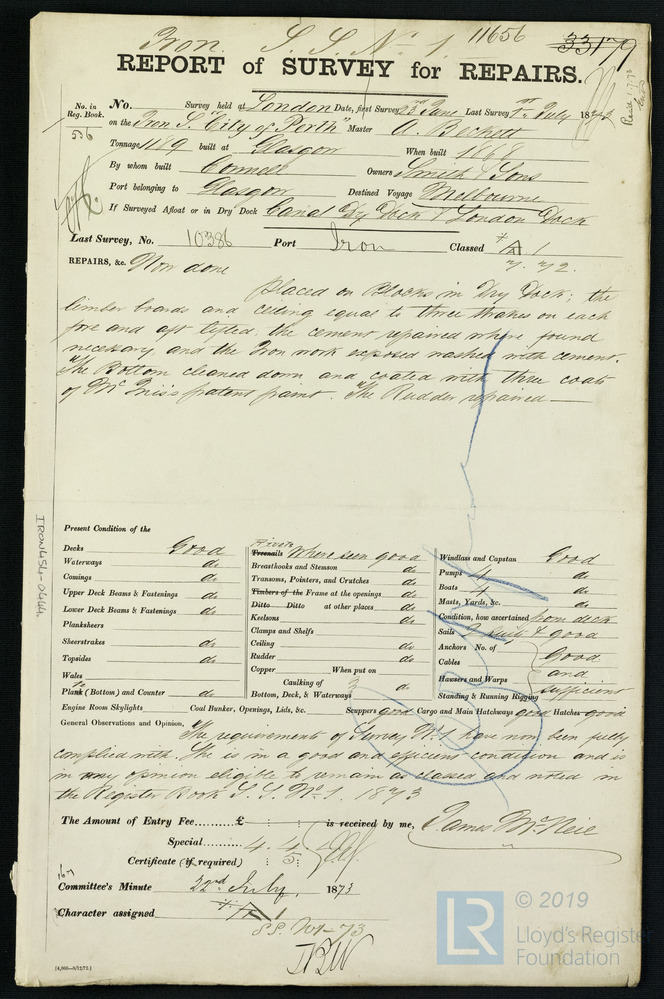 Iron. S. S. No. 1. 11656 33179
REPORT of SURVEY for REPAIRS.
No. in Reg. Book. 556
No. Survey held at London Date, first Survey 23rd June Last Survey 1st July 1873
on the Iron S. "City of Perth" Master A. Beckett
Tonnage 1189 built at Glasgow When built 1868
By whom built Connell Owners Smith & Sons
Port belonging to Glasgow Destined Voyage Melbourne
If Surveyed Afloat or in Dry Dock Canal Dry Dock & London Dock
Last Survey, No. 10386 Port Iron Classed A 1
7. 72.
REPAIRS, &c. Now done
Placed on Blocks in Dry Dock; the
limber boards and ceiling equal to three strakes on each
fore and aft lifted; the cement repaired where found
necessary and the Iron work exposed washed with cement.
The Bottom cleaned down and coated with three coats
of Mc Innis's patent paint. The Rudder repaired
IRON454-0464.
Present Condition of the
Decks Good
Waterways do
Comings do
Upper Deck Beams & Fastenings do
Lower Deck Beams & Fastenings do
Planksheers
Sheerstrakes do
Topsides do
Wales
Plank (Bottom) and Counter do
Rivets
Treenails Where seen good
Breasthooks and Stemson do
Transoms, Pointers, and Crutches do
Timbers of the Frame at the openings do
Ditto Ditto at other places do
Keelsons do
Clamps and Shelfs
Ceiling do
Rudder do
Copper When put on
Caulking of
Bottom, Deck, & Waterways do
Windlass and Capstan Good
Pumps 4 do
Boats 4 do
Masts, Yards, &c. do
Condition, how ascertained from deck
Sails good
Anchors No. of Good
Cables and
Hawsers and Warps
Standing & Running Rigging sufficient
Engine Room Skylights Coal Bunker, Openings, Lids, &c. Scuppers good Cargo and Main Hatchways good Hatches good
General Observations and Opinion, The requirements of Survey No. 1 have now been fully
complied with. She is in a good and efficient condition and is
in my opinion eligible to remain as classed and noted in
the Register Book S. S. No. 1. 1873
The Amount of Entry Fee £ : : is received by me, James McNeil
Special 4. 4.
Certificate (if required) : 5:
Committee's Minute 22nd July, 1873
Character assigned A 1
S.S. No 1-73
[4,000—8/12/72.]
LR © 2019
Lloyd's Register
Foundation